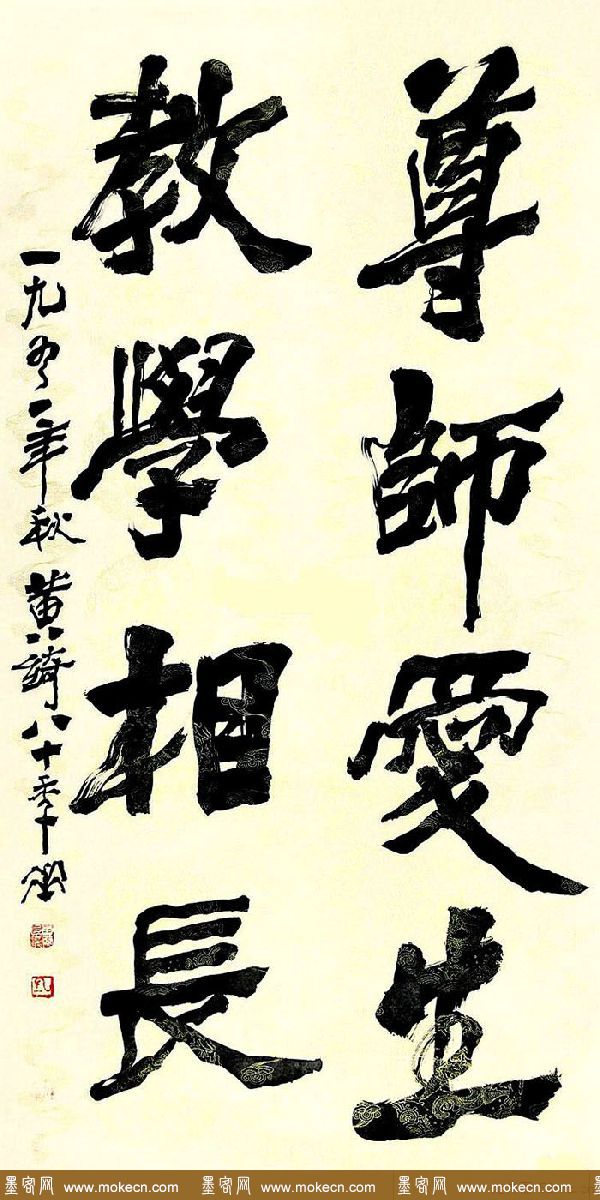 尊師愛生
教學相長
一九一年秋 黄綺八十
墨客网 www.mokecn.com 墨客网 www.mokecn.com 墨客网 www.mokecn.com